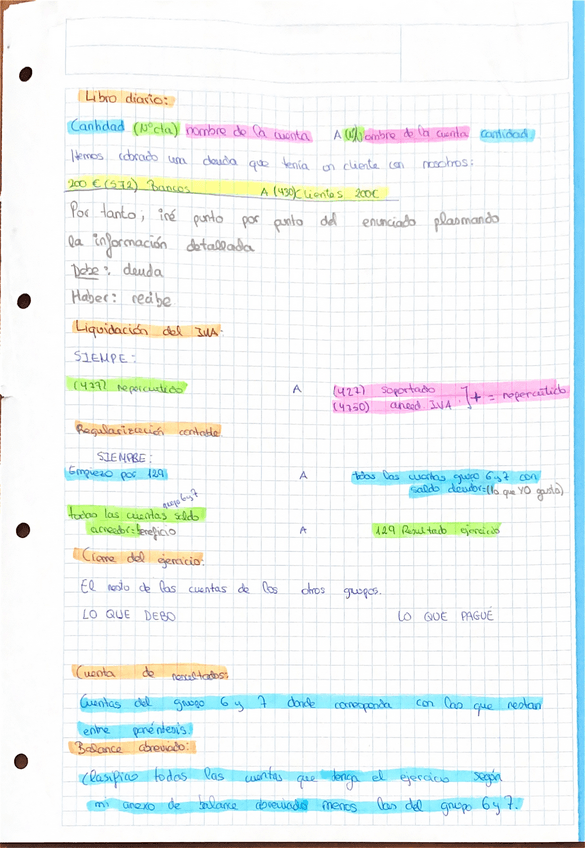 Libro diario:
Cantidad (Nºcta) nombre de la cuenta A (Nº) nombre de la cuenta cantidad
Hemos cobrado una deuda que tenía un cliente con nosotros:
200 € (572) Bancos A (430) Clientes 200€
Por tanto, iré punto por punto del enunciado plasmando
la información detallada
Debe: deuda
Haber: recibe
Liquidación del IVA.
SIEMPE:
(477) repercutido A (472) soportado
(4750) acreed. IVA ] + = repercutido
Regularización contable
SIEMPRE:
Empiezo por 129 A todas las cuentas grupo 6 y 7 con
saldo deudor=(lo que YO gasto)
grupo 6 y 7
todas las cuentas saldo
acreedor=beneficio A 129 Resultado ejercicio
Cierre del ejercicio:
El resto de las cuentas de los otros grupos.
LO QUE DEBO LO QUE PAGUÉ
Cuenta de resultados:
Cuentas del grupo 6 y 7 donde corresponda con las que restan
entre paréntesis.
Balance abreviado:
Clasifico todas las cuentas que tenga el ejercicio según
mi anexo de balance abreviado menos las del grupo 6 y 7.